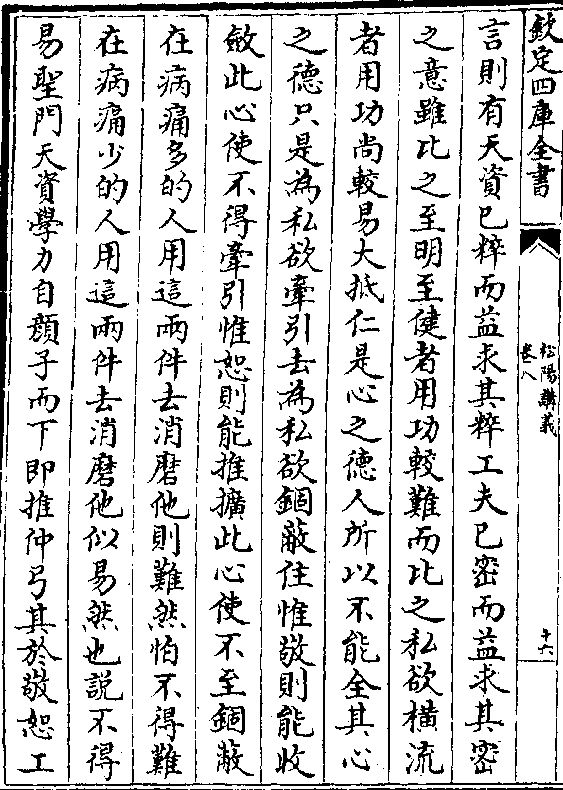 欽定四庫全書
松陽講義
卷八
十六
言則有天資已粹而益求其粹工夫已密而益求其密
之意雖比之至明至健者用功較難而比之私欲橫流
者用功尚較易大抵仁是心之德人所以不能全其心
之德只是為私欲牽引去為私欲錮蔽住惟敬則能收
斂此心使不得牽引惟恕則能推擴此心使不至錮蔽
在病痛多的人用這兩件去消磨他則難然怕不得難
在病痛少的人用這兩件去消磨他似易然也說不得
易聖門天資學力自顏子而下即推仲弓其於敬恕工